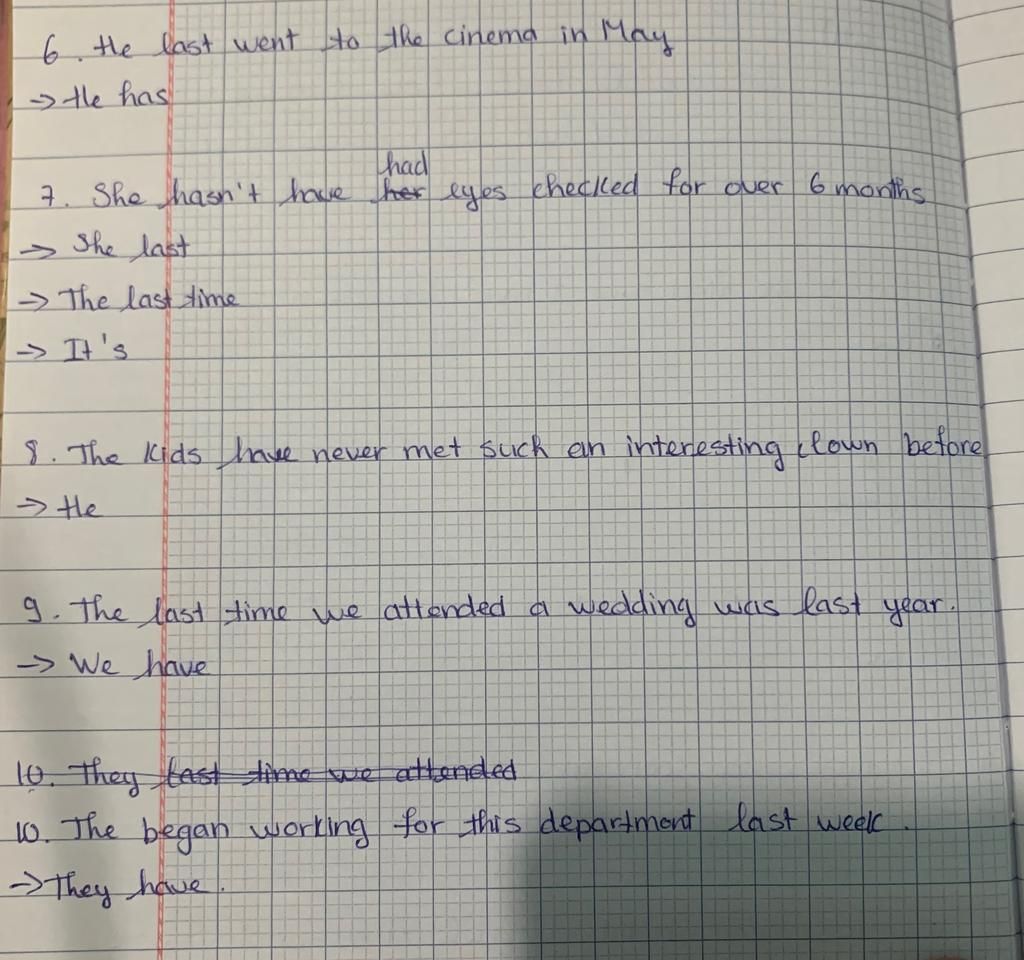 6. He last went to the cinema in May
→ He has
had
7. She hasn't have her eyes checked for over 6 months
→ She last
→ The last time
→ It's
8. The kids have never met such an interesting clown before
→ He
9. The last time we attended a wedding was last year.
→ We have
10. They last time we attended
10. The began working for this department last week.
→ They have.